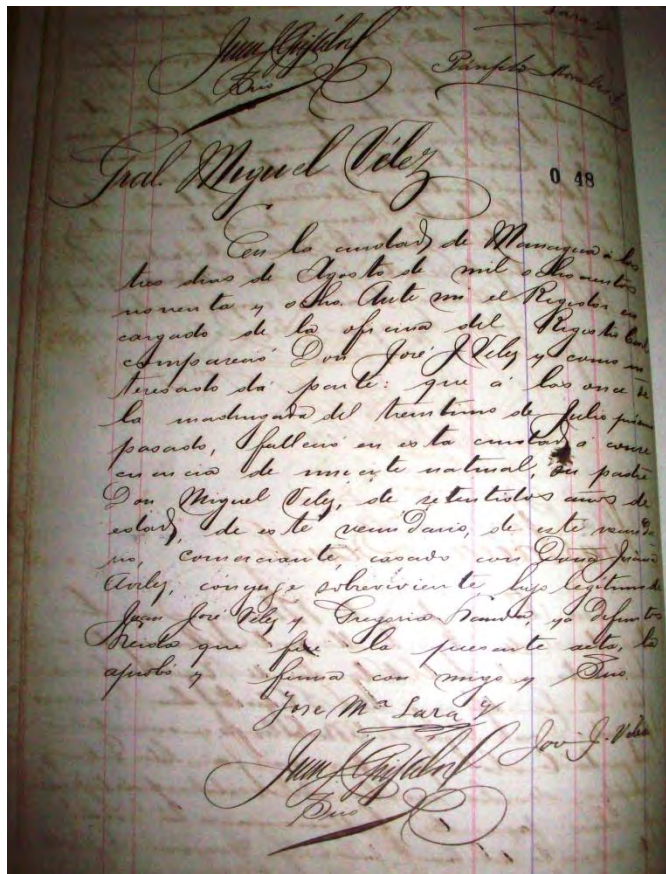 Lara
Juan
Srio
Pánfilo
Gral. Miguel Vélez
0 48
En la ciudad de Managua a los
tres dias de Agosto de mil ochocientos
noventa y ocho. Ante mi el Registra en
cargado de la oficina del Registro Civil
compareció Don José J. Velez y como in
teresado dá parte: que á las once de
la madrugada del treintiuno de Julio próximo
pasado, falleció en esta ciudad á conse
cuencia de muerte natural, su padre
Don Miguel Velez, de setentidos anos de
edad, de este vecindario, de este vecinda
rio, comerciante, casado con Dona Juana
Aviles, cónyuge sobreviviente hijo legitimo de
Juan José Velez y Gregoria ya difuntos
Leida que fue la presente acta, la
aprobó y firma con migo y Srio.
Jose Mª Lara
José J. Velez
Juan
Srio